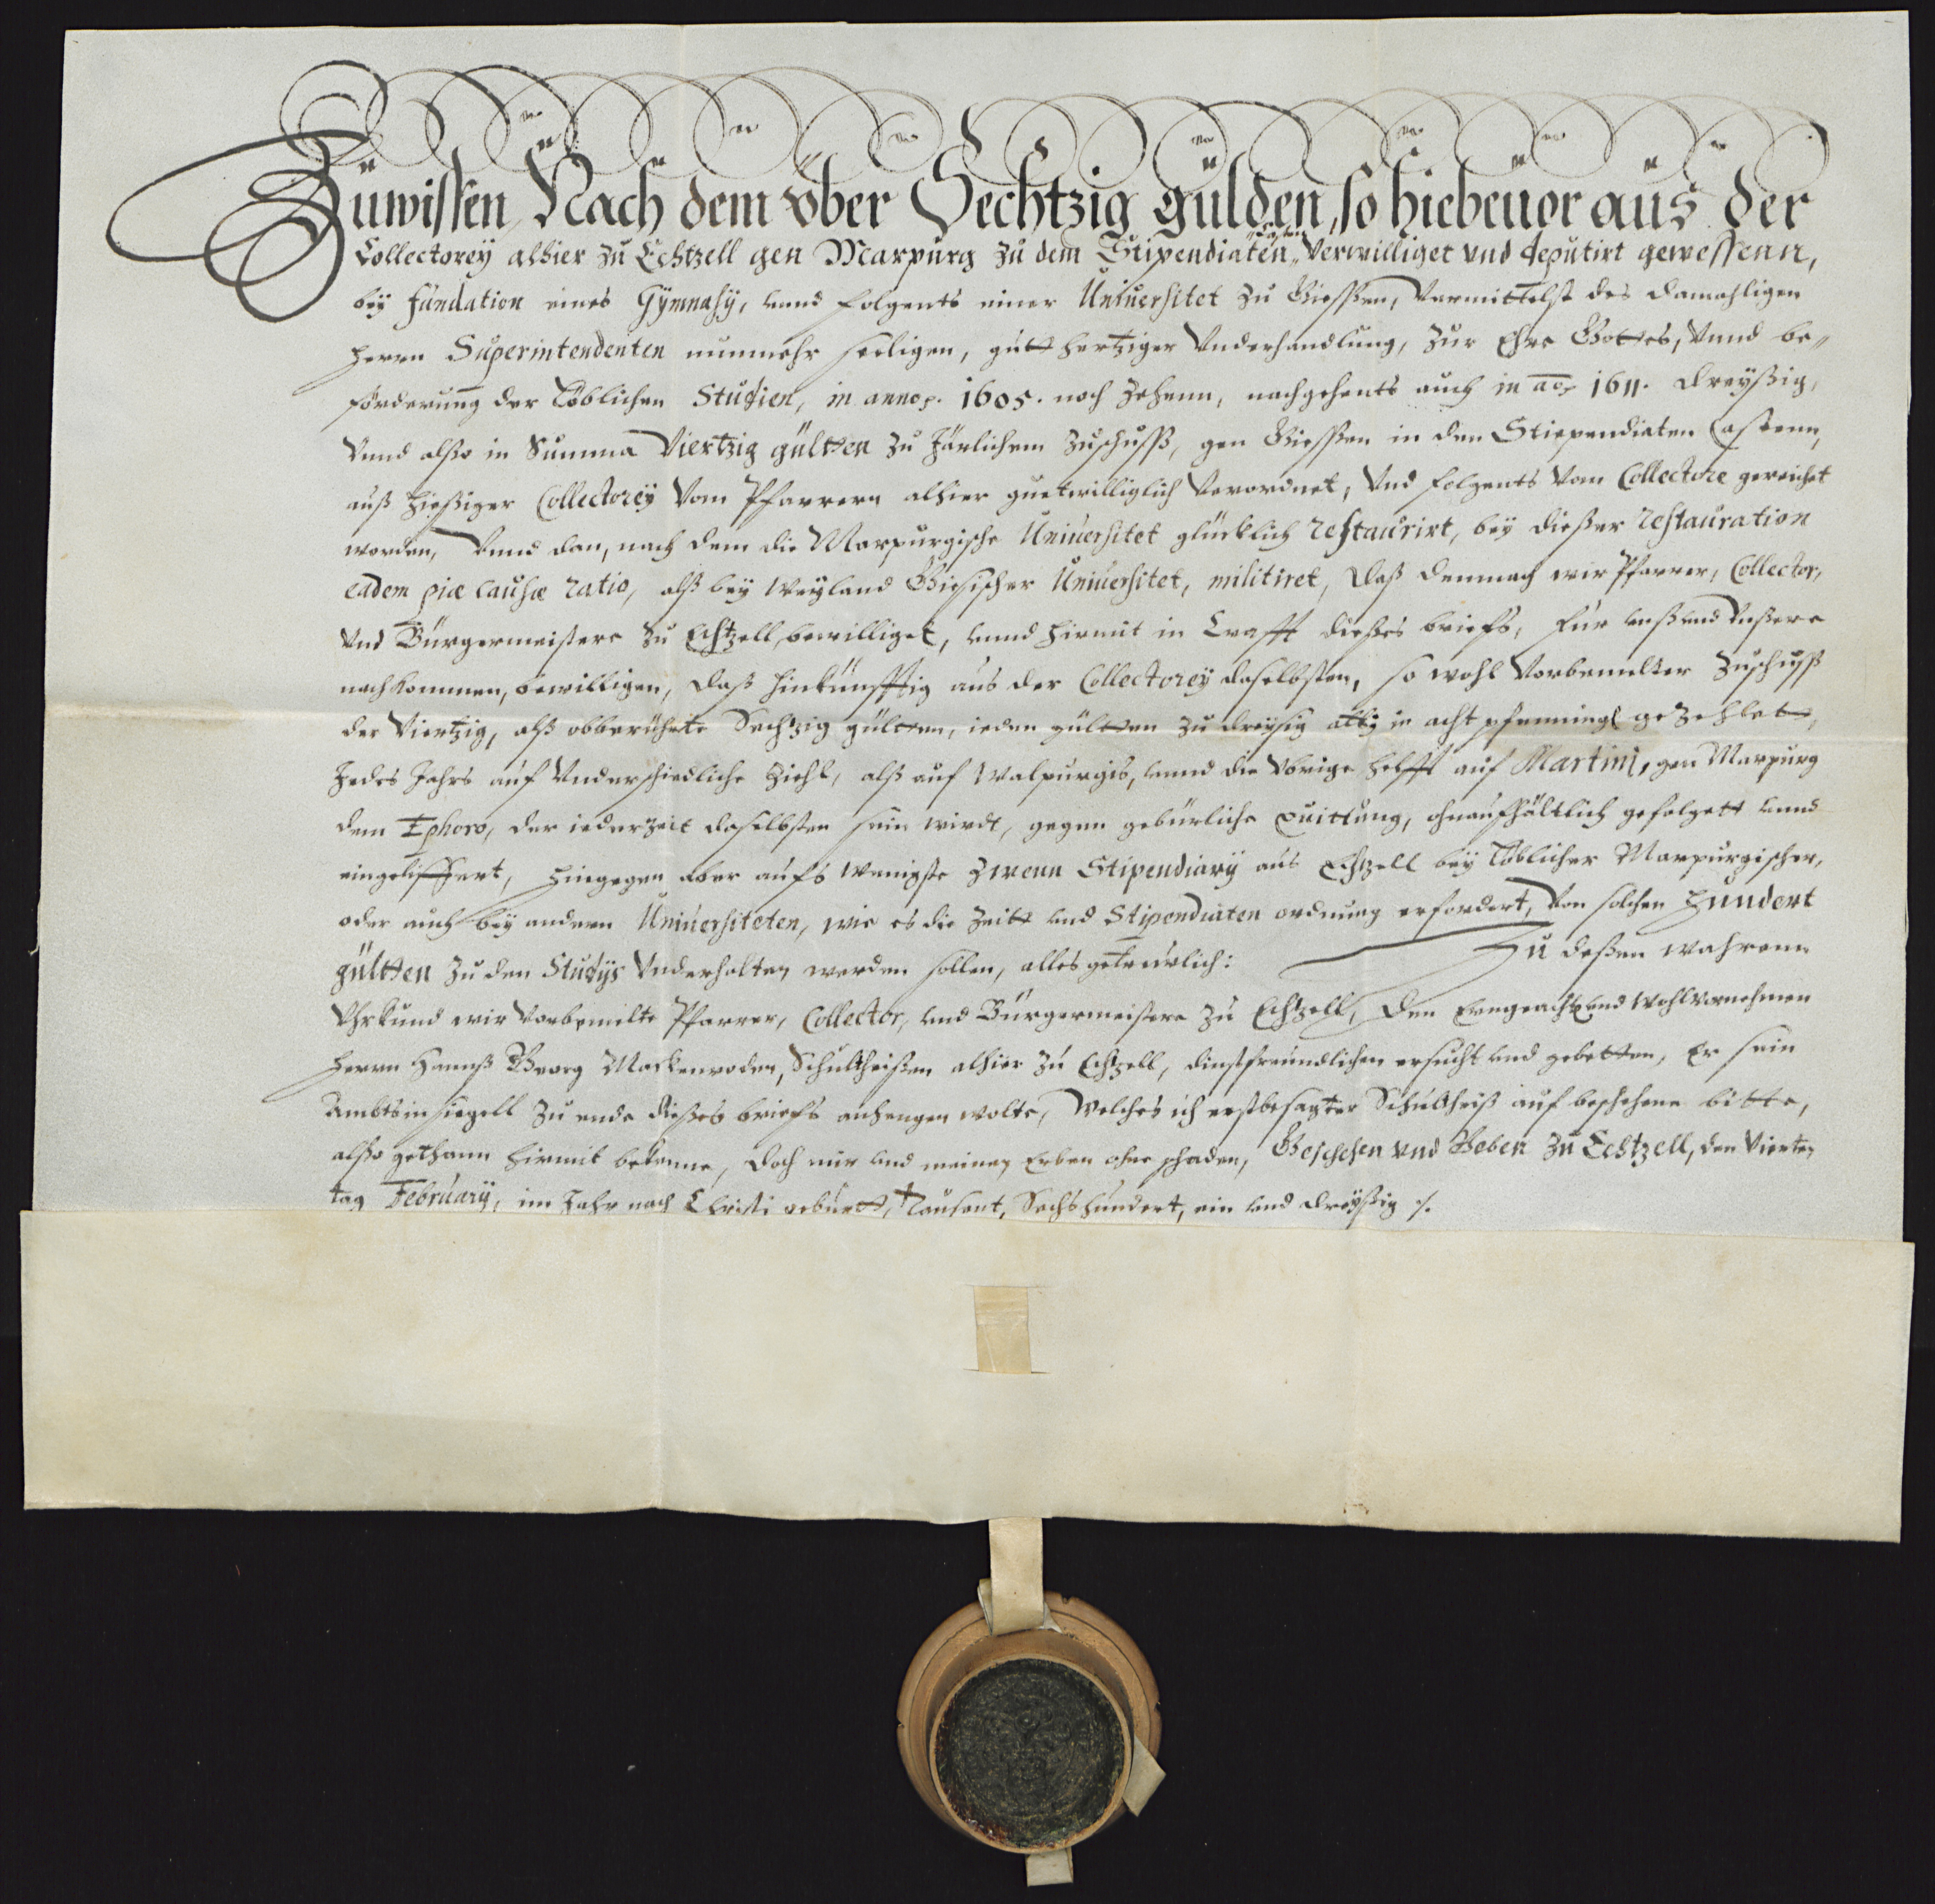 Zuwissen, Nach dem vber Sechtzig gulden, so hiebeuor aus der
Collectorey alhier zu Echtzell gen Marpurg zu dem Stipendiaten Verwilliget vnd deputirt gewessenn,
bey fundation eines Gymnasÿ, vnnd folgents einer Uniuersitet zu Giessen, Vermittelst des damahligen
Herrn Superintendenten nunmehr seeligen, gutt hertziger Vnderhandlung, zur Ehre Gottes, Vnnd be„
förderung der Löblichen Studien, in anno 1605. noch Zehenn, nachgehents auch in ao 1611. dreyßig,
Vnnd also in Summa Viertzig gültten zu Järlichem Zuschuss, gen Giessen in den Stiependiaten Castenn,
auß hießiger Collectoreÿ Vom Pfarrern alhier guetwilliglich Verordnet, Vnd folgents Vom Collectore gereichet
worden, Vnnd dan, nach dem die Marpurgische Uniuersitet glücklich restaurirt, beÿ dießer restauration
eadem piæ causæ ratio, alß beÿ weÿland Giesischer Uniuersitet, militiret, daß demnach wir Pfarrer, Collector,
Vnd Bürgermeistere zu Echtzell, bewilliget, vnnd hirmit in Crafft dießes briefs, für vnß vnd Vnßere
nachkommen, bewilligen, daß hinkünfftig aus der Collectoreÿ daselbsten, so wohl Vorbemelter Zuschuss
der Viertzig, alß obberührte Sechtzig gültten, ieden gültten zu dreysig albg ie acht pfenning gezehlet,
Jedes Jahrs auf Vnderschiedliche Ziehl, alß auf Walpurgis, vnnd die Vbrige helfft auf Martini, gen Marpurg
dem Ephoro, der iederzeit daselbsten sein wirdt, gegen gebürliche quittung, ohnaufhältlich gefolgett vnnd
eingeliffert, hingegen aber aufs wenigste zween Stipendiarÿ aus Echtzell beÿ Löblicher Marpurgischer,
oder auch beÿ andern Uniuersiteten, wie es die Zeitt vnd Stipendiaten ordnung erfordert, Von solchen Hundert
gültten zu den Studÿs Vnderhalten werden sollen, alles getreüwlich: Zu deßen wahrenn
Vhrkund wir Vorbemelte Pfarrer, Collector, vnd Bürgermeistere zu Echtzell, den Erngeacht vnd Wohlvornehmen
Herrn Hannß Georg Mackenroden, Schultheißen alhier zu Echtzell, dinstfreundlichen ersucht vnd gebetten, Er sein
Ambtsinsiegell zu ende dießes briefs anhengen wolte, Welches ich erstbesagter Schultheiß auf beschehene bitte,
also gethann hirmit bekenne, doch mir vnd meinen Erben ohne schaden, Geschehen vnd Geben zu Echtzell, den Vierten
tag Februarÿ, im Jahr nach Christi geburtt, Tausent, Sechshundert, ein vnd dreyßig.